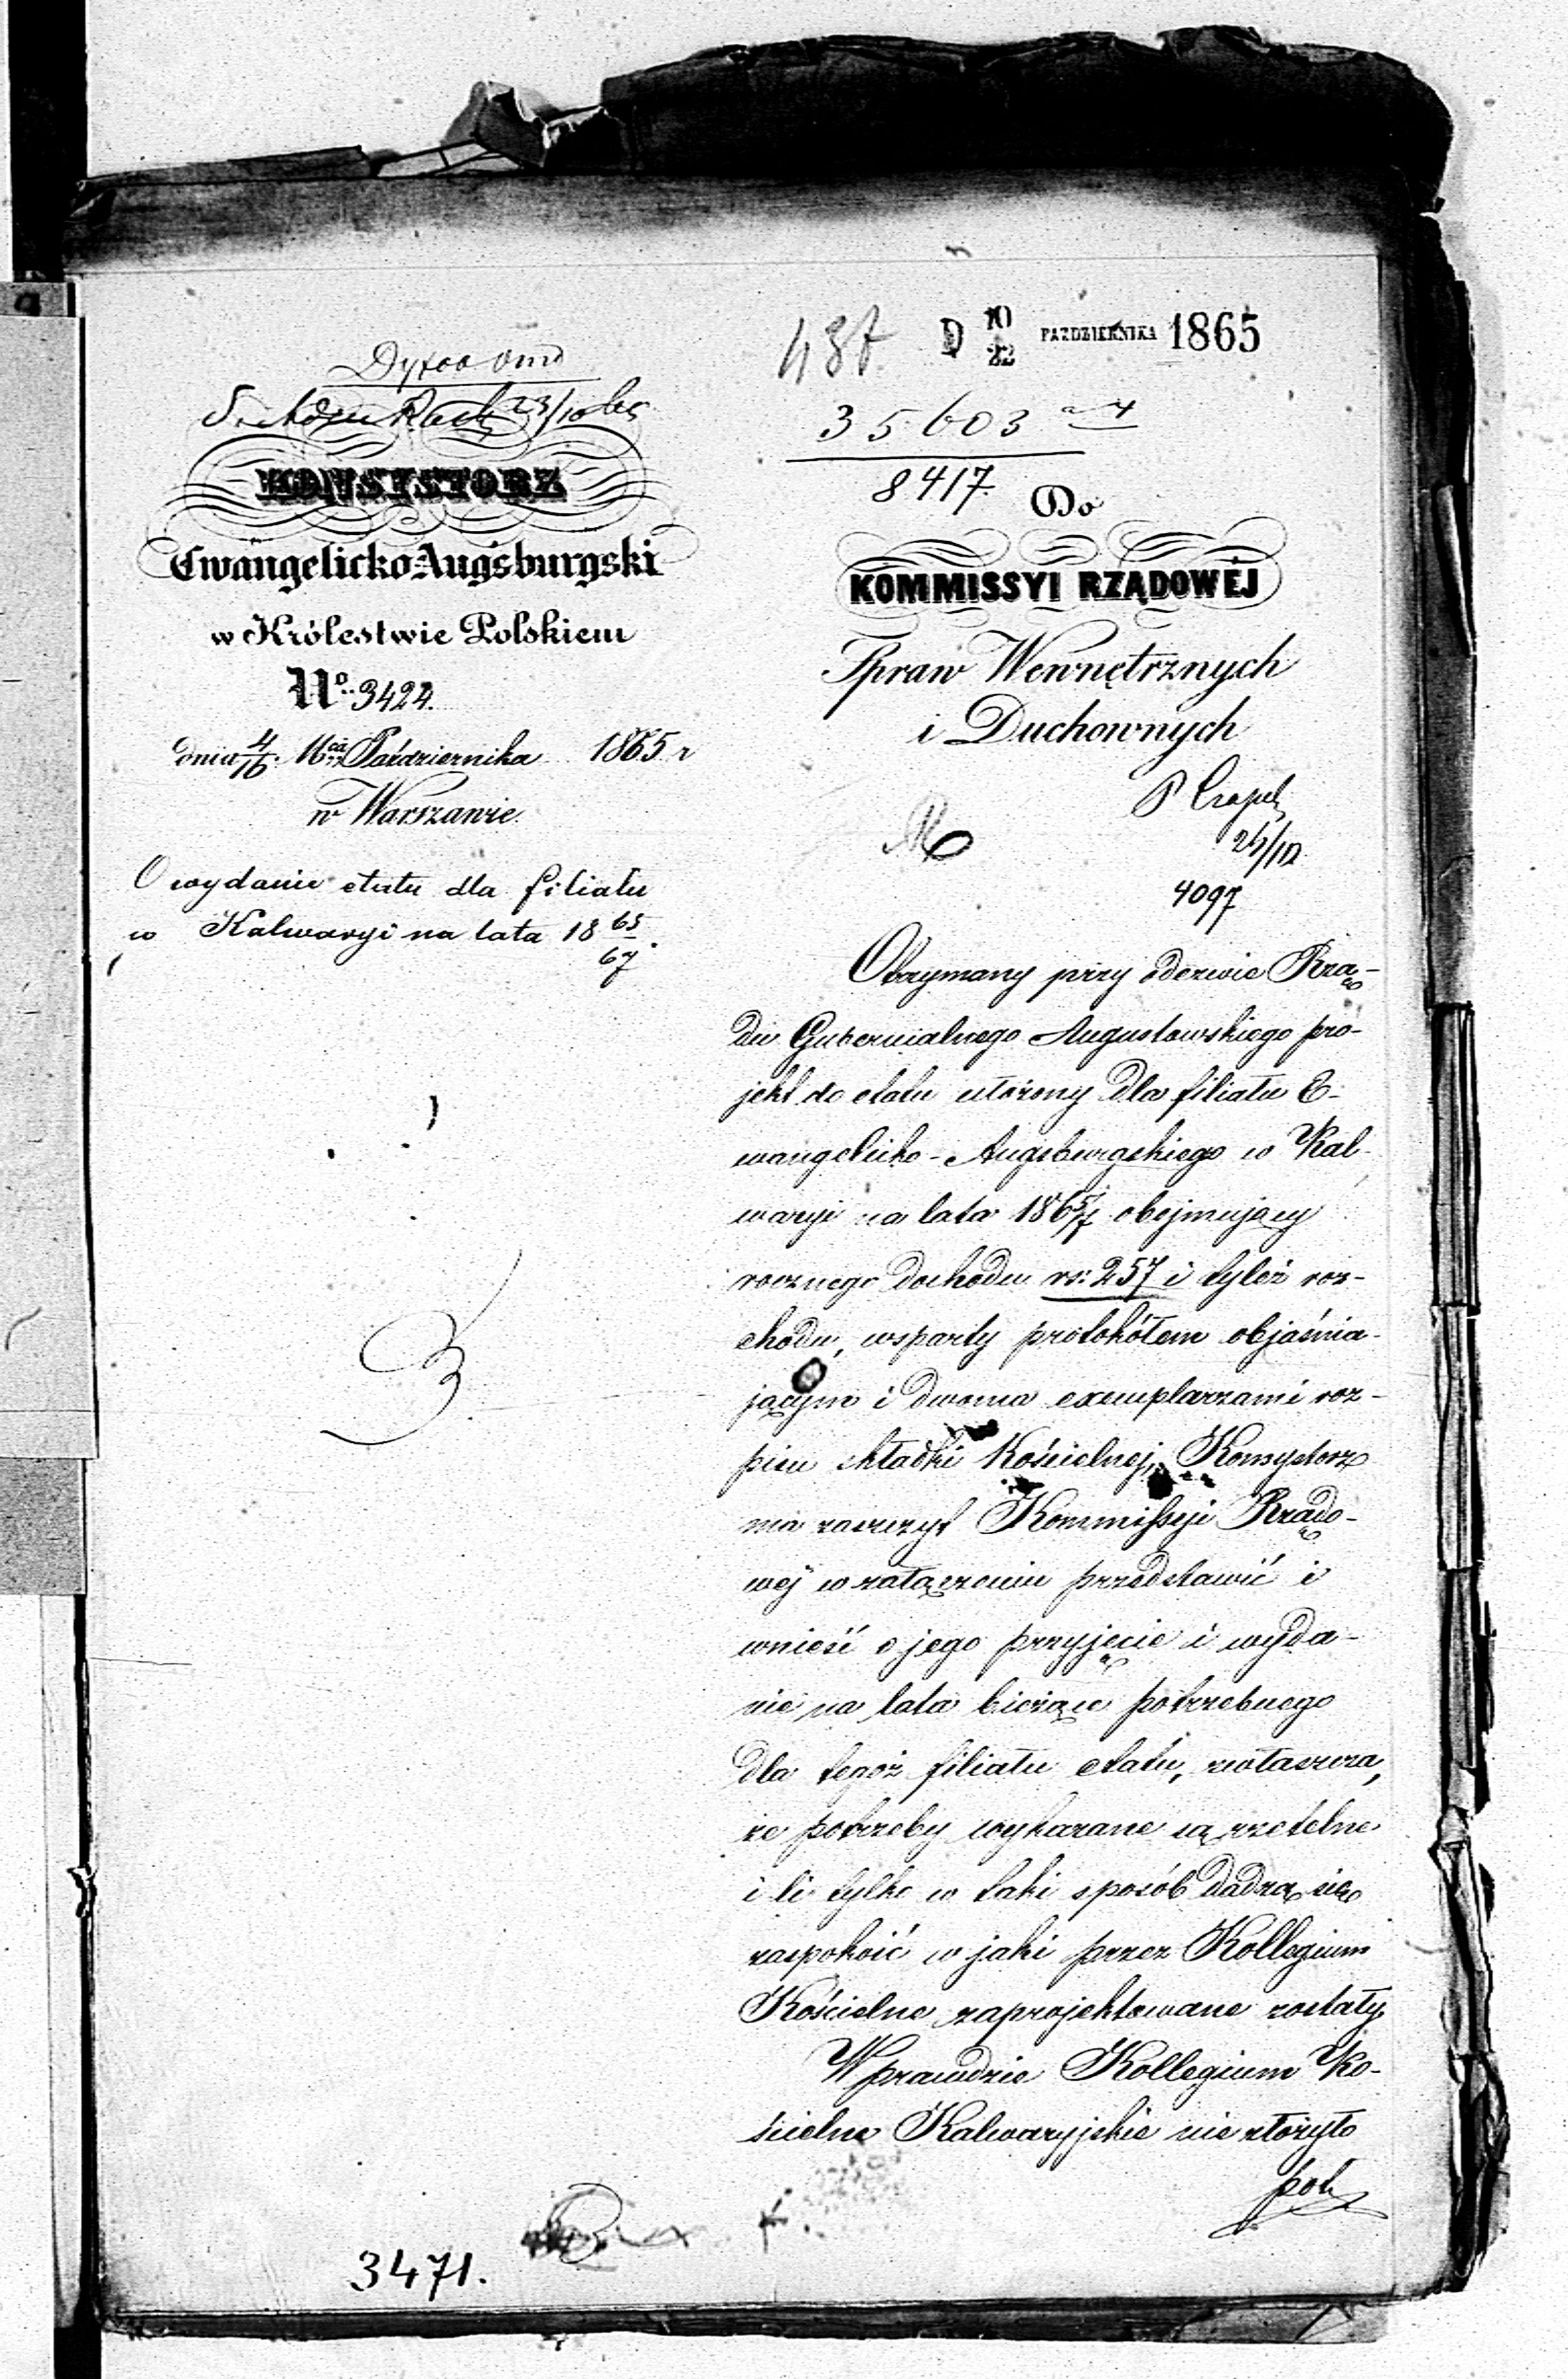 23/10 65
KONSYSTORZ
Ewangelicko-Augsburgski
w Królestwie Polskiem
No. 3424.
dnia 4/16 Mca Października 1865 r
w Warszawie.
O wydanie etatu dla filiału
w Kalwaryi na lata 18 65/67.
3471.
437 D 10/22 PAŹDZIERNIKA 1865
35603
8417.
Do
KOMMISSYI RZĄDOWÉJ
Spraw Wewnętrznych
i Duchownych
4097
Otrzymany przy odezwie Rzą-
du Gubernialnego Augustowskiego pro-
jekt do etatu ułożony dla filiału E-
wangelicko-Augsburgskiego w Kal-
waryi na lata 1865/7 obejmujący
rocznego dochodu rs: 257 i tyleż roz-
chodu, wsparty protokółem objaśnia-
jącym i dwoma exemplarzami roz-
pisu składki Kościelnej, Konsystorz
ma zaszczyt Kommissyi Rządo-
wéj w załączeniu przedstawić i
wnieść o jego przyjęcie i wyda-
nie na lata bieżące potrzebnego
dla tegoż filiału etatu, zwłaszcza,
że potrzeby wykazane są rzetelne
i li tylko w taki sposób dadzą się
zaspokoić w jaki przez Kollegium
Kościelne zaprojektowane zostały
Wprawdzie Kollegium Ko-
ścielne Kalwaryjskie nie złożyło